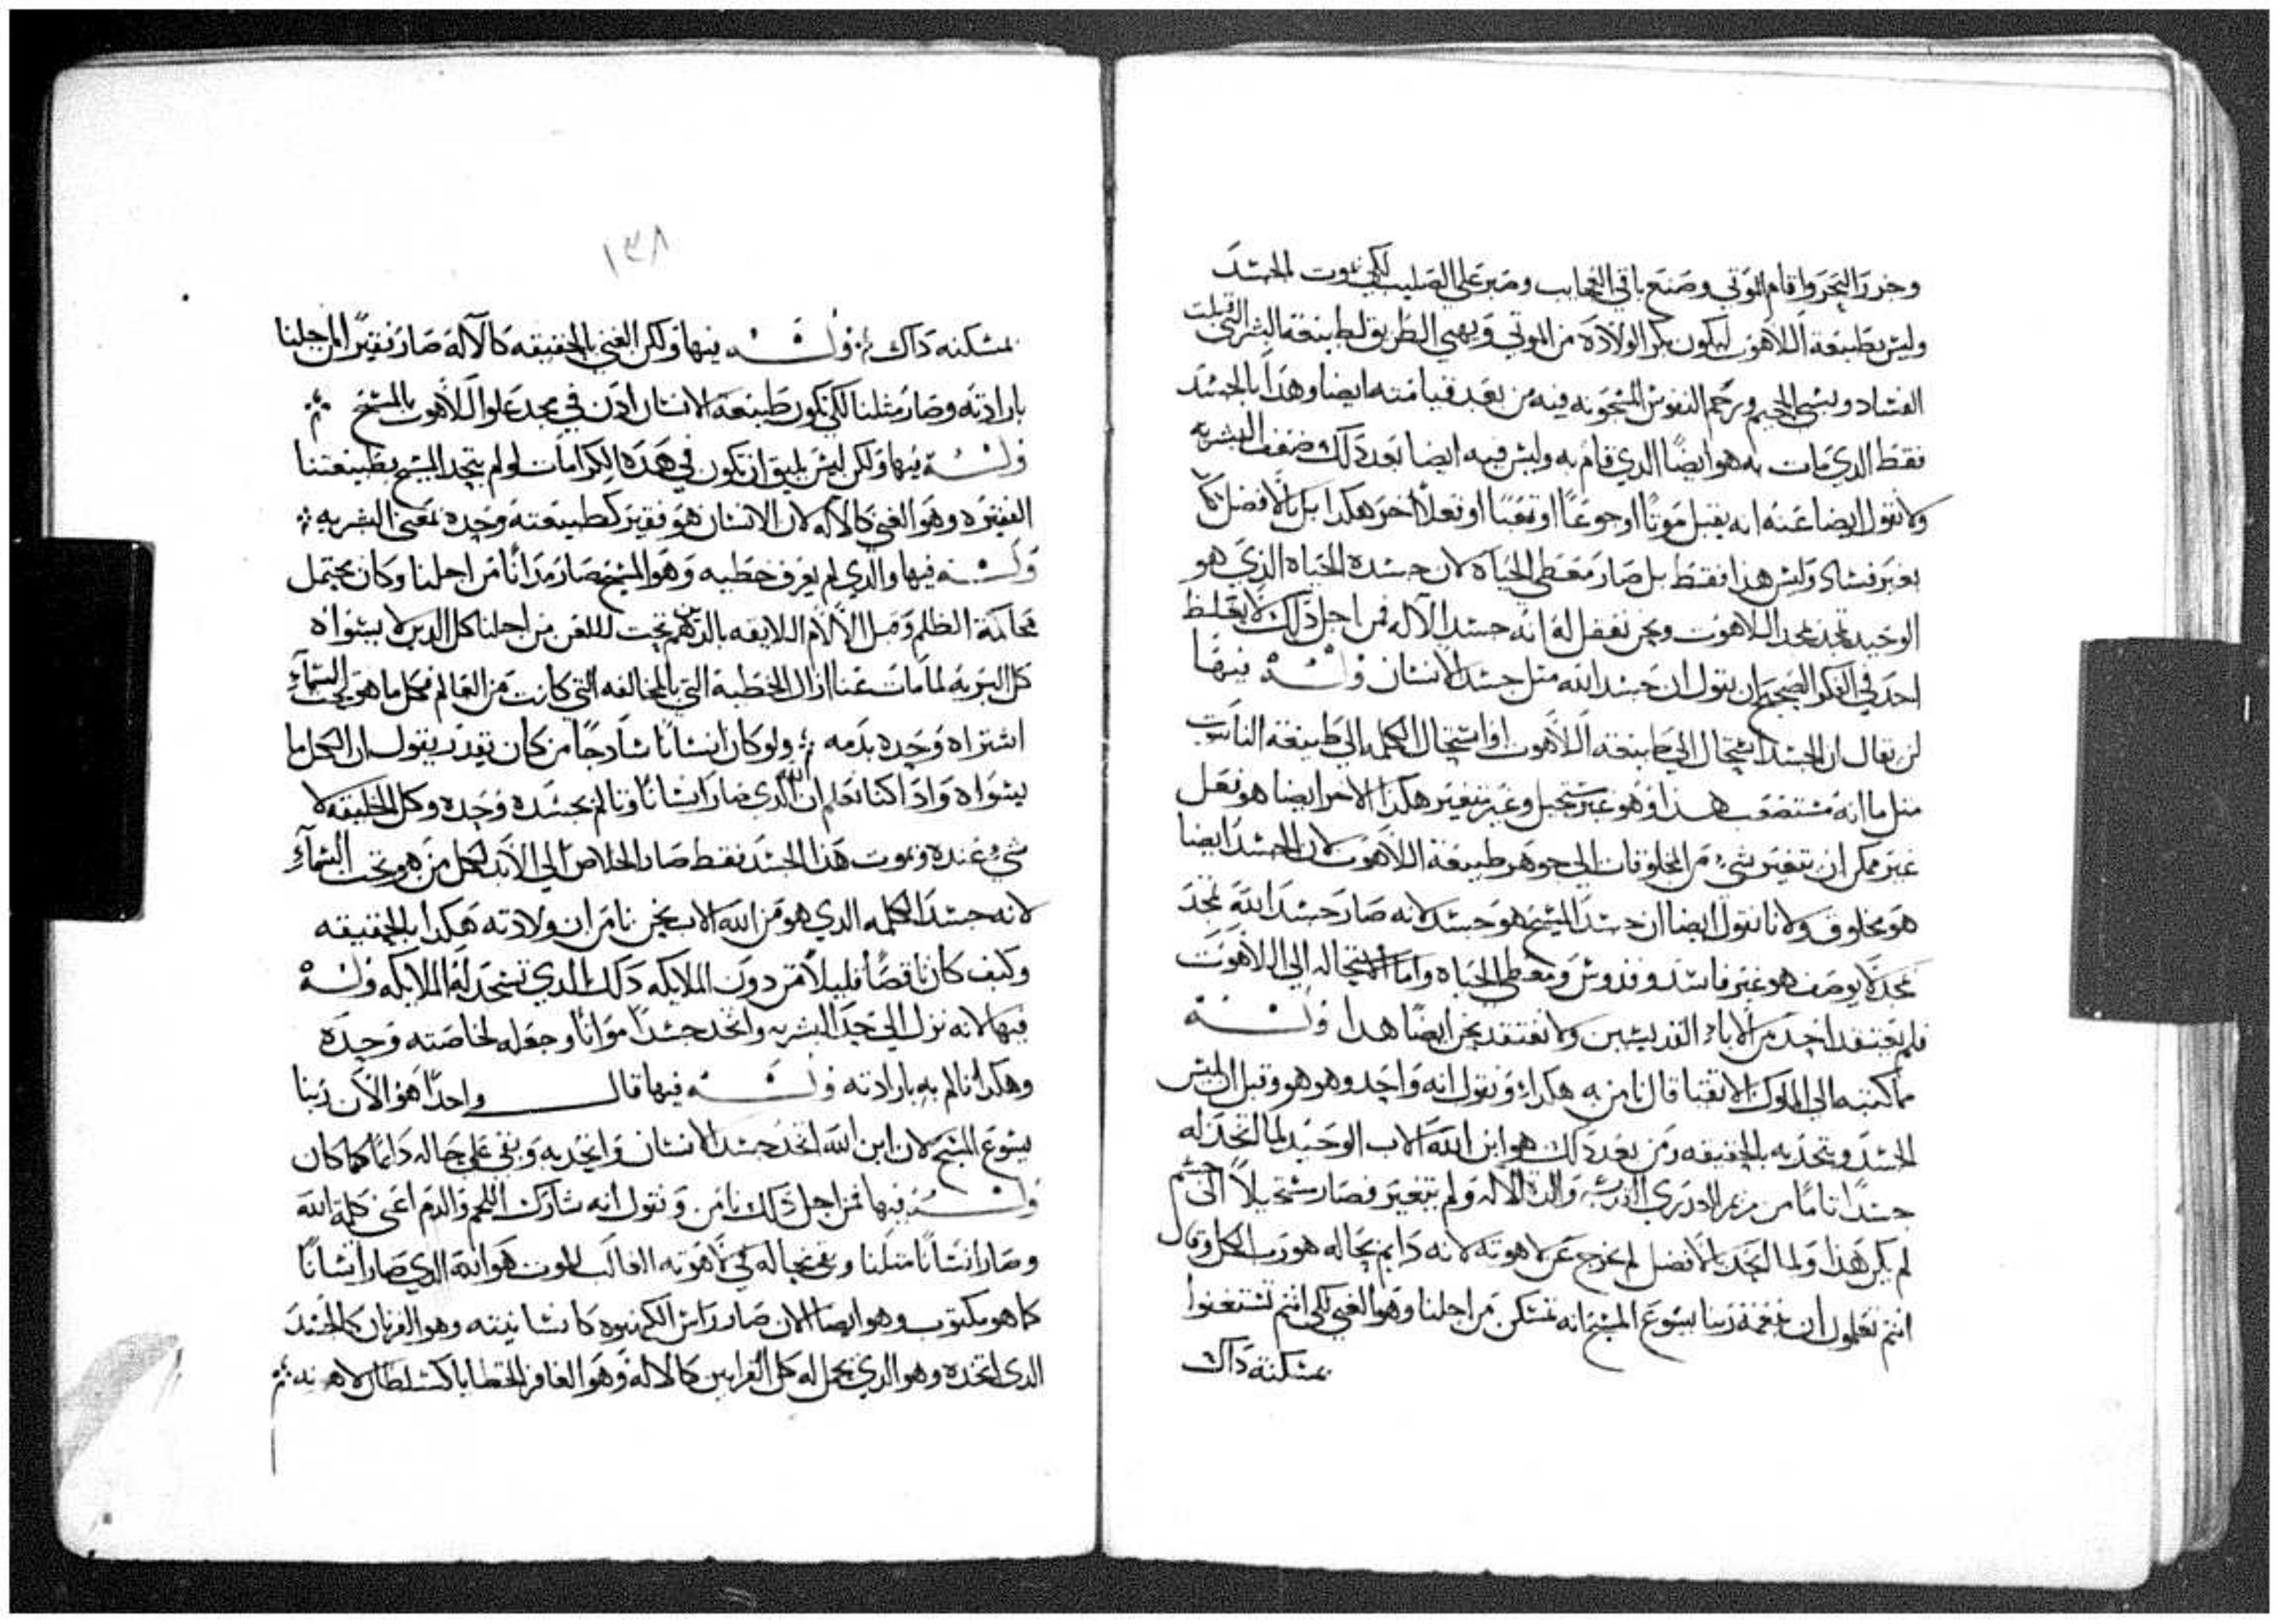 وخرر البحر واقام الموتي وصنع باقي العجايب وصبر على الصليب لكي يموت الجسد
وليس بطبيعة اللاهوت ليكون بكر الولاده من الموتي ويهيي الطريق لطبيعة البشر التي قبلت
الفساد ويسبي الجحيم ويرحم النفوس المسجونه فيه من بعد قيامته ايضا وهذا بالجسد
فقط الدي مات به هو ايضًا الدي قام به وليس فيه ايضا بعد ذلك ضعف البشريه
ولا نقول ايضا عنه انه يقبل موتًا او جوعًا او تعبًا او فعلاً اخر هكدا بل بالافضل
بغير فساد وليس هدا فقط بل صار معطي الحياه لان جسده الحياه الذي هو
الوحيد مجد بمجد اللاهوت ونحن نفضل له انه جسد الاله فمن اجل ذلك لا يغلط
احد في الفكر الصحيح ان يقول ان جسد الله مثل جسد الانسان وله فيها
لن يقال ان الجسد استحال الي طبيعة اللاهوت او استحال الكلمه الي طبيعة الناسوت
مثل ما انه مستصعب هذا وهو غير مستحيل وغير متغير هكدا الاخر ايضا هو فعل
غير ممكن ان يتغير شيء من المخلوقات الي جوهر طبيعة اللاهوت لان الجسد ايضا
هو مخلوق ولانا نقول ايضا ان جسد المسيح هو جسد لانه صار جسد الله بمجد
مجد لا يوصف هو غير فاسد وقدوس ومعطي الحياه واما الاستحاله الي اللاهوت
فلم يعتقد احد من الاباء القديسين ولا نعتقد نحن ايضًا هدا وله
مما كتبه الي الملوك الاتقيا قال نامن به هكدا ونقول انه واحد وهو هو وقبل ان لبس
الجسد ويتحد به بالحقيقه ومن بعد ذلك هو ابن الله الاب الوحيد لما اتخد له
جسدًا تامًا من مريم العدري القديسه والدة الاله ولم يتغير فصار مستحيلاً الي جسم
لم يكن هذا ولما اتحد بالافضل لم يخرج عن لاهوته لانه دايم بحاله هو رب الكل وقال
انتم تعلمون ان نعمة ربنا يسوع المسيح انه تمسكن من اجلنا وهو الغني لكي انتم تستغنوا
بمسكنة داك
١٣٨
بمسكنه داك وله فيها ولكن الغني بالحقيقه كالآله صار فقيرًا من اجلنا
بارادته وصار مثلنا لكي تكون طبيعة الانسان ادن في مجد علو اللاهوت بالمسيح
وله فيها ولكن ليس يليق ان تكون في هذه الكرامات لو لم يتحد المسيح بطبيعتنا
الفقيره وهو الغني كالاله لان الانسان هو فقير كطبيعته وحده بمعني البشريه
وله فيها والدي لم يعرف خطيه وهو المسيح صار من اجلنا وكان يحتمل
محاكمة الظلم وقبل الآلام اللايقه بالدين هم تحت اللعن من اجلنا كل الدين لا يسواه
كل البريه لما مات عنا ازال الخطية التي بالمخالفه التي كانت من العالم فكل ما هو تحت السماء
اشتراه وحده بدمه ولو كان انسانًا سادجًا من كان يقدر يقول ان الكل ما
يسواه واذا كنا نعلم ان الله الذي صار انسانًا وتالم بجسده وحده وكل الخليقه لا
شيء عنده وبموت هذا الجسد فقط صار الخلاص الي الابد لكل من هو تحت السماء
لانه جسد الكلمه الدي هو من الله الاب نحن نامن ان ولادته هكدا بالحقيقه
وكيف كان ناقصًا قليلاً من دون الملايكه ذلك الدي تسجد له الملايكه وله
فيها لانه نزل الي حد البشريه واتخد جسدًا مواتًا وجعله لخاصته وحده
وهكدا تالم به بارادته وله فيها قال واحدًا هو الآن ربنا
يسوع المسيح لان ابن الله اتخد جسد الانسان واتحد به وبقي علي حاله دايمًا كما كان
وله فيها فمن اجل ذلك نامن ونقول انه شارك اللحم والدم اعني كلمة الله
وصار انسانًا مثلنا وبقي بحاله في لاهوته الغالب للموت هو الله الدي صار انسانًا
كما هو مكتوب وهو ايضا الان صار راس الكهنوه كانسانيته وهو القربان كالجسد
الدى اتخده وهو الدي يحمل له كل القرابين كالاله وهو الغافر الخطايا كسلطان لاهوته